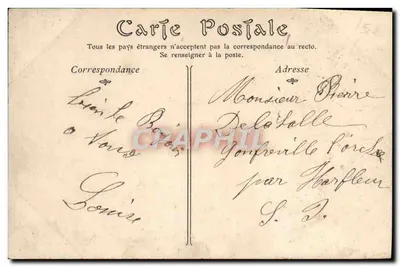 Carte Postale
Tous les pays étrangers n'acceptent pas la correspondance au recto.
Se renseigner à la poste.
Correspondance
Adresse
Monsieur Pierre
Delasalle
Gonfreville l'orcher
par Harfleur
S. I.
à Vous
Louise
CPAPHIL